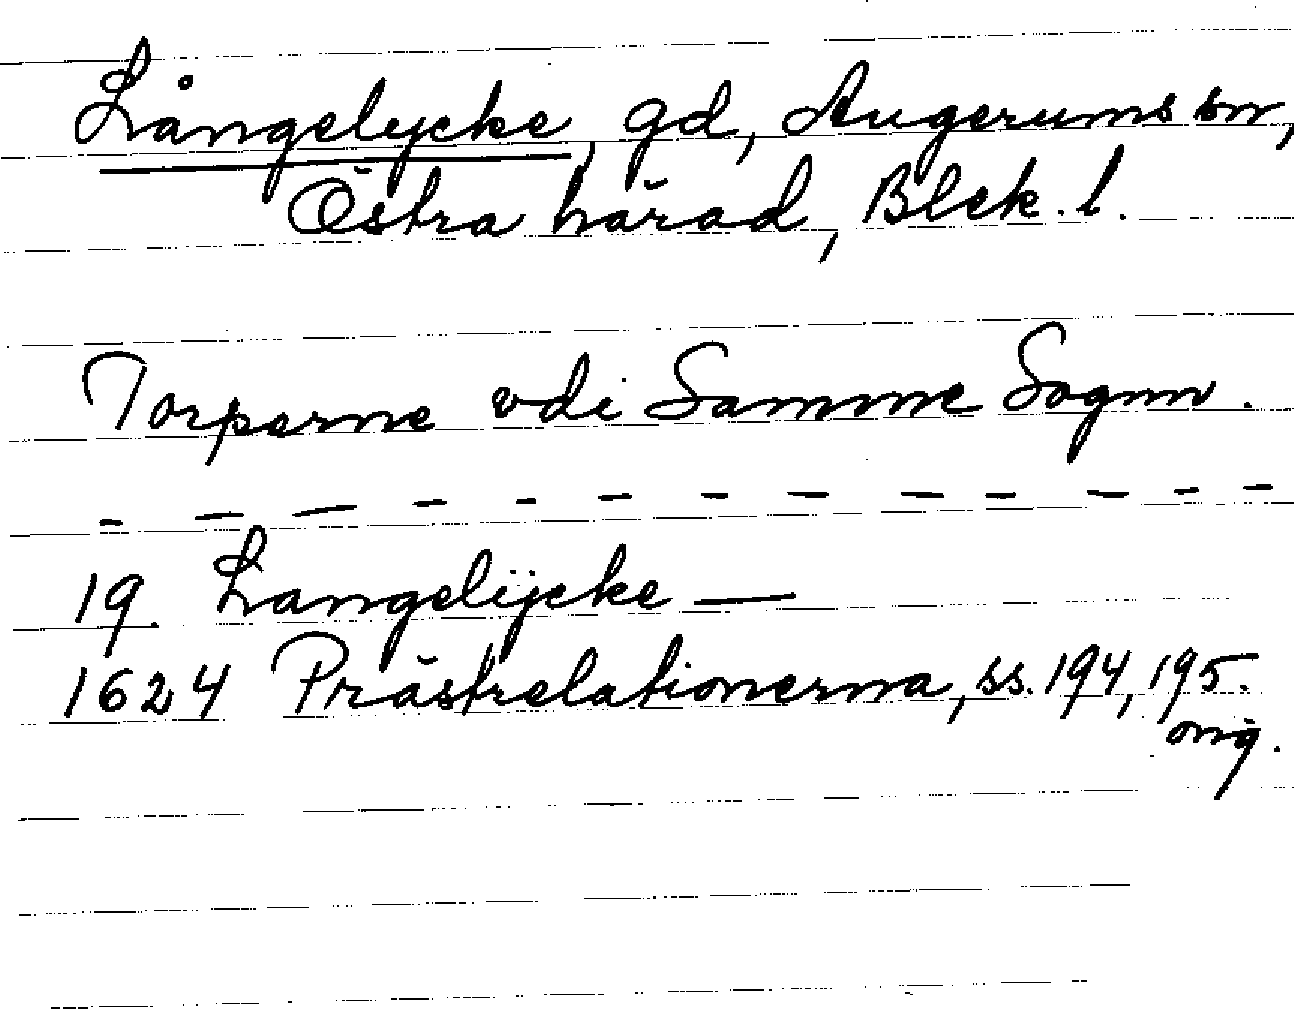 Långelycke, gd, Augerums sn,
Östra härad, Blek. l.
Torperne vdi Samme Sognn.
- - - - - - - - - - - - -
19. Langelÿcke —
1624 Prästrelationerna, ss. 194, 195.
orig.